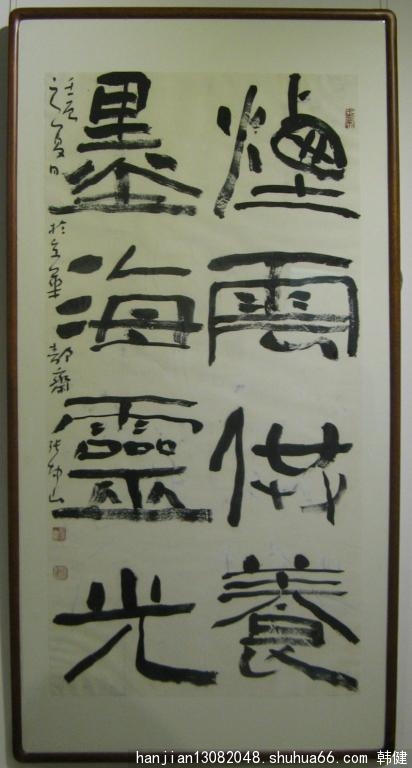 煙雲供養
墨海靈光
壬辰之夏日於京華
齋張
hanjian13082048. shuhua66.com 韩健